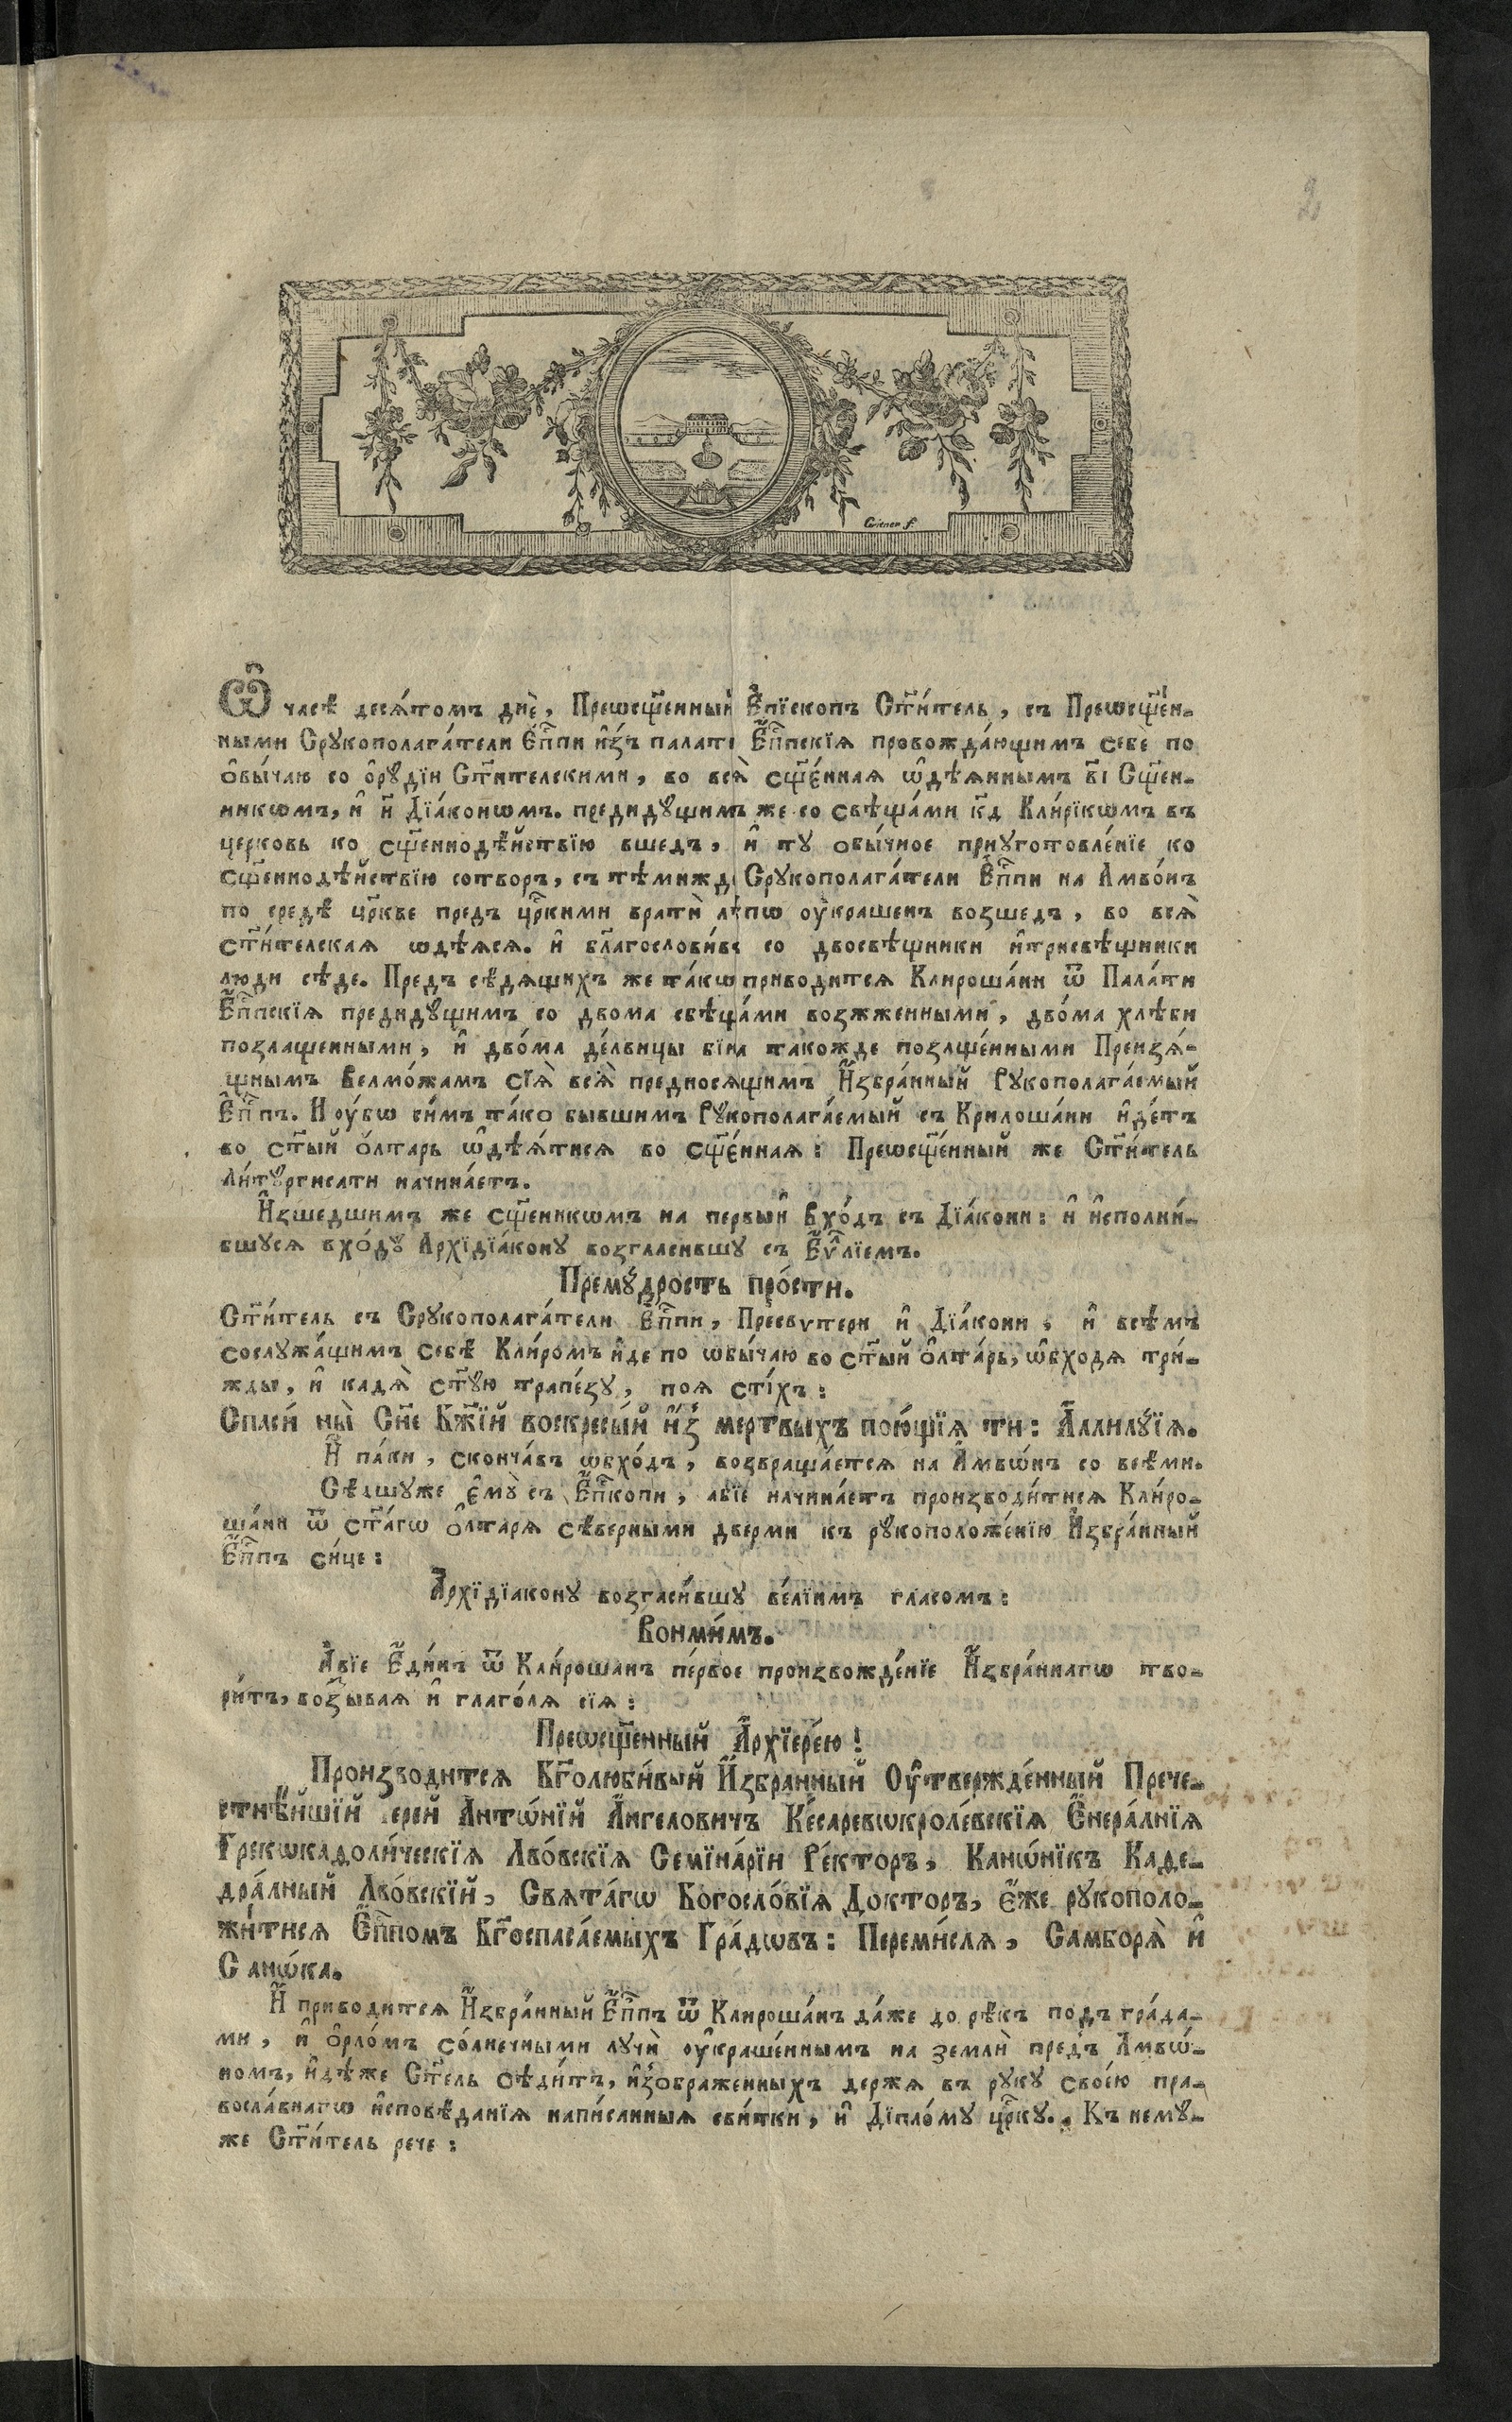 2
Gvitner f.
Ѽ часѣ десѧ́томъ днѐ, Преѡсщ҃е́нный Є҆пїскопъ Ст҃и́тель, съ Преѡсщ҃е́н-
ными Срꙋкополага́тели Є҆пп҃и и҆зъ палати Є҆пп҃скїѧ провожда́ющимъ себѐ по
о҆бы́чаю со о҆рꙋ́дїи Ст҃ителскими, во всѧ̀ сщ҃е́ннаѧ ѡ҆дѣѧннымъ в҃і Сщ҃ен-
никѡмъ, и҆ и҃ Дїа́конѡмъ. предидꙋщимъ же со свѣща́ми к҃д Кли́рїкѡмъ въ
церковь ко сщ҃еннодѣ́йствїю вшедъ, и҆ тꙋ обы́чное приꙋготовле́нїе ко
сщ҃еннодѣ́йствїю сотворъ, съ тѣмижд Срꙋкополага́тели Є҆пп҃и на Амво́нъ
по средѣ цр҃кве предъ цр҃кими вратѝ лѣпѡ оу҆крашенъ возшедъ, во всѧ̀
ст҃и́телскаѧ ѡдѣѧсѧ. и҆ бл҃агослови́вс со двосвѣщники и҆трисвѣщники
люди сѣде. Предъ сѣдѧщихъ же та́кѡ приводитсѧ Клироша́ни ѿ Пала́ти
Є҆пп҃скїѧ предидꙋщимъ со двома свѣща́ми возжженными, дво́ма хлѣби
позлащенными, и҆ дво́ма де́лвицы віна такожде позлаще́нными Преизѧ́-
щнымъ Велмо́жамъ сїѧ̀ всѧ̀ предносѧщимъ И҆збра́нный Рꙋкополага́емый
Є҆пп҃ъ. И оу́бѡ си́мъ та́ко бывшимъ Рꙋкополага́емый съ Крилоша́ни и҆де́тъ
во ст҃ый о́лтарь ѡ҆дѣѧ́тисѧ во сщ҃е́ннаѧ: Преѡсщ҃е́нный же Ст҃и́тель
Ли́тꙋргисати начина́етъ.
И҆зшедшимъ же сщ҃енникѡмъ на первый Вхо́дъ съ Дїа́кони: и҆ и҆сполни́-
вшꙋсѧ вхо́дꙋ Архїдїа́конꙋ возгласившꙋ съ Є҆ѵ҃лїемъ.
Премꙋ́дрость про́сти.
Ст҃и́тель съ Срꙋкополага́тели Є҆пп҃и, Пресвѵтери и҆ Дїа́кони, и҆ всѣмъ
сослꙋжа́щимъ себѣ Кли́ромъ и҆де по ѡбы́чаю во ст҃ый о҆лта́рь, ѡ҆входѧ три́-
жды, и҆ кадѧ̀ ст҃ꙋю трапе́зꙋ, поѧ сті́хъ:
Спаси́ ны̀ Сн҃е Бж҃їй воскресы́й и҆з̾ мертвыхъ пою́щїѧ ти: А҆ллилꙋ́їѧ.
И҆ па́ки, сконча́въ ѡвхо́дъ, возвраща́етсѧ на А҆мвѡ́нъ со всѣми.
Сѣдшꙋже є҆мꙋ̀ съ Є҆п҃копи, абїе начина́етъ производи́тисѧ Кли́ро-
ша́ни ѿ ст҃а́гѡ о҆лтарѧ сѣверными дверми къ рꙋкоположе́нїю И҆збра́нный
Є҆пп҃ъ си́це:
А҆рхїдїаконꙋ возгласи́вшꙋ ве́лїимъ гласомъ:
Вонми́мъ.
А҆вїе Є҆ди́нъ ѿ Кли́рошанъ пе́рвое произвожде́нїе И҆збра́ннагѡ тво-
ри́тъ, воззываѧ и҆ глаго́лѧ сїѧ:
Преѡсщ҃е́нный А҆рхїере́ю!
Производитсѧ Бг҃олюби́вый И҆збранный Оу҆твержде́нный Прече-
стнѣ́йшїй ерей Антѡ́нїй А҆нгеловичъ Ке́саревѡкроле́вскїѧ Є҆нера́лнїѧ
Грекѡкадоли́ческїѧ Лво́вскїѧ Семїна́рїи Ре́кторъ, Канѡ́нїкъ Каде-
дра́лный Лво́вскїй, Свѧта́гѡ Богосло́вїѧ Докторъ, є҆́же рꙋкополо-
жи́тисѧ Є҆пп҃омъ Бг҃оспаса́емыхъ Гра́дѡвъ: Переми́слѧ, Самборѧ̀ и҆
Санѡ́ка.
И҆ приводитсѧ И҆збра́нный Є҆пп҃ъ ѿ Клироша́нъ да́же до рѣкъ подъ гра́да-
ми, и҆ о҆рло́мъ со́лнечными лꙋчѝ оу҆краше́ннымъ на землѝ предъ Амвѡ́-
номъ, и҆дѣже Ст҃ель сѣди́тъ, и҆зображенныхъ держѧ въ рꙋкꙋ свое́ю пра-
восла́внагѡ и҆сповѣданїѧ напи́санныѧ сви́тки, и҆ Дїпло́мꙋ цр҃кꙋ. Къ немꙋ-
же Ст҃и́тель рече: